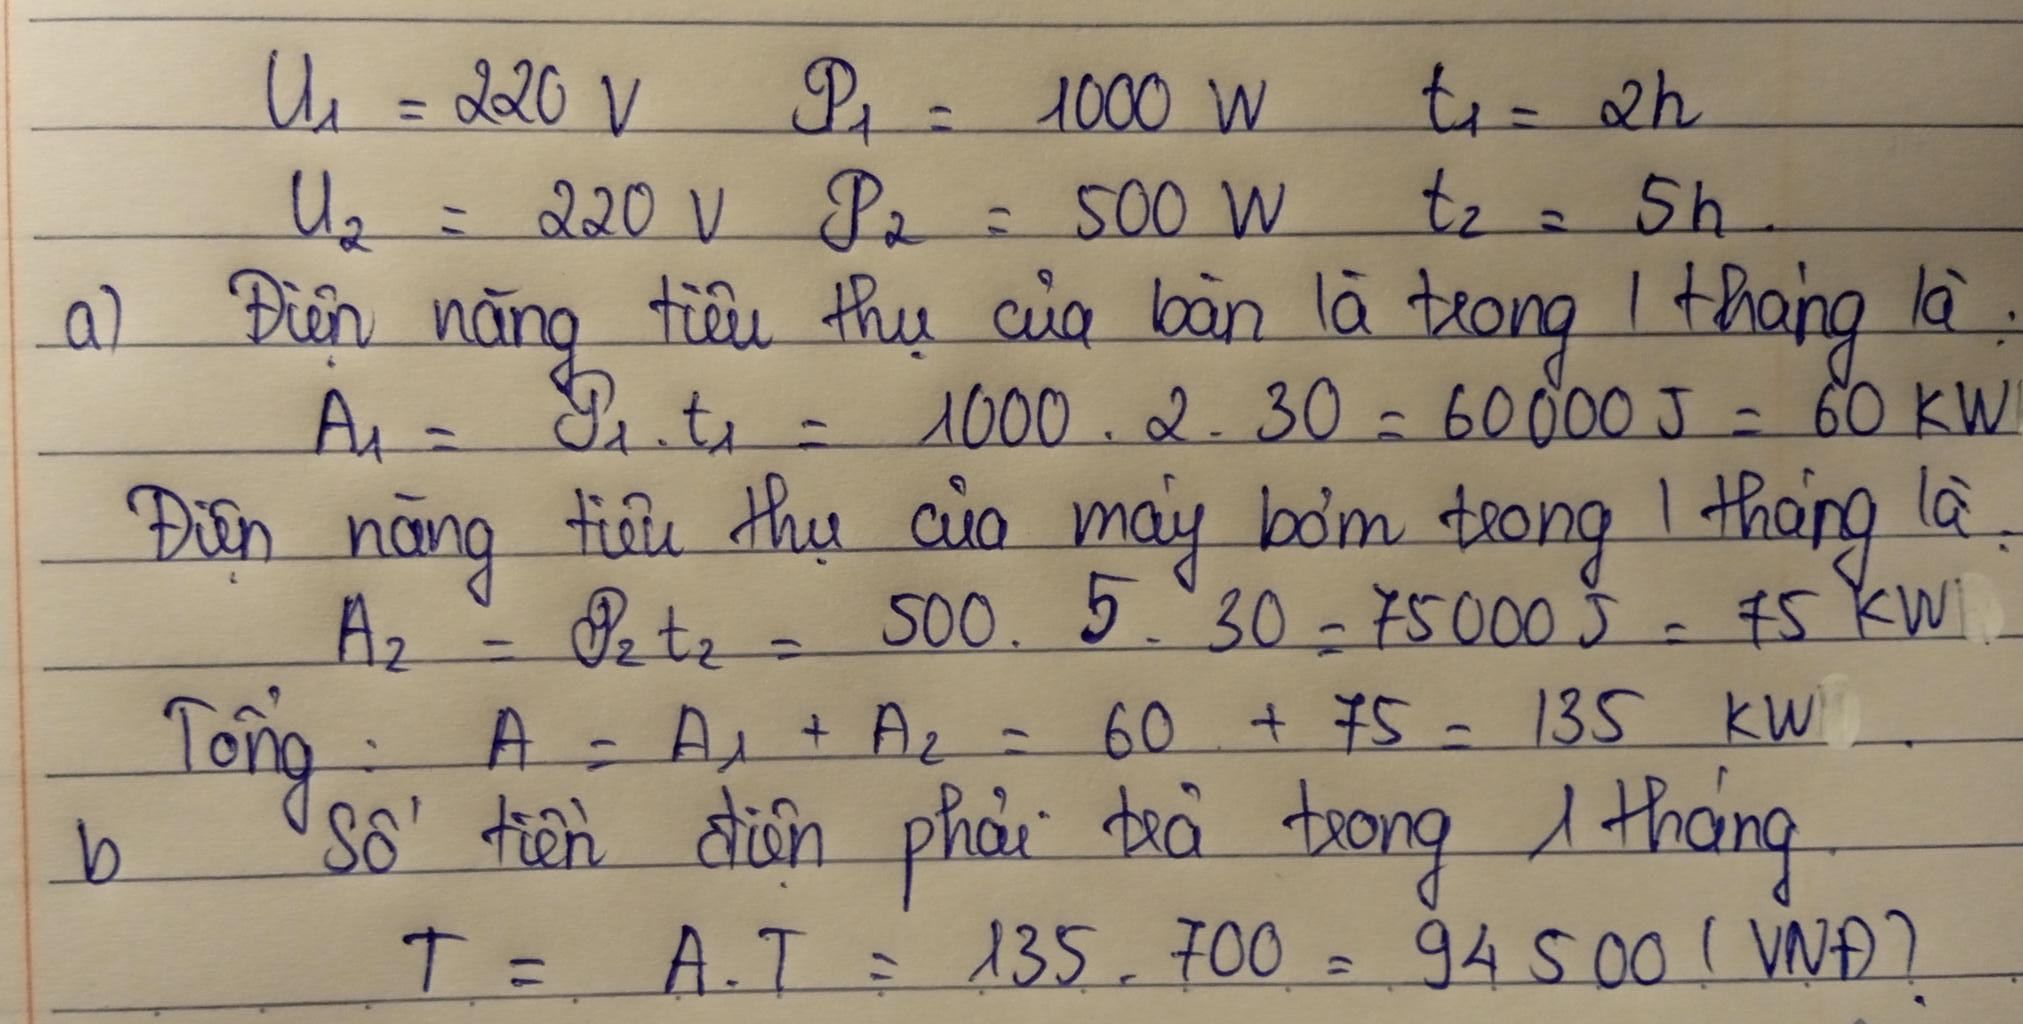 U₁ = 220 V P₁ = 1000 W t₁ = 2h
U₂ = 220 V P₂ = 500 W t₂ = 5h.
a) Điện năng tiêu thụ của bàn là trong 1 tháng là:
A₁ = P₁.t₁ = 1000 . 2 . 30 = 60000 J = 60 KW
Điện năng tiêu thụ của máy bơm trong 1 tháng là:
A₂ = P₂ t₂ = 500 . 5 . 30 = 75000 J = 75 KW
Tổng : A = A₁ + A₂ = 60 + 75 = 135 KW .
b Số tiền điện phải trả trong 1 tháng.
T = A.T = 135 . 700 = 94 500 (VNĐ)